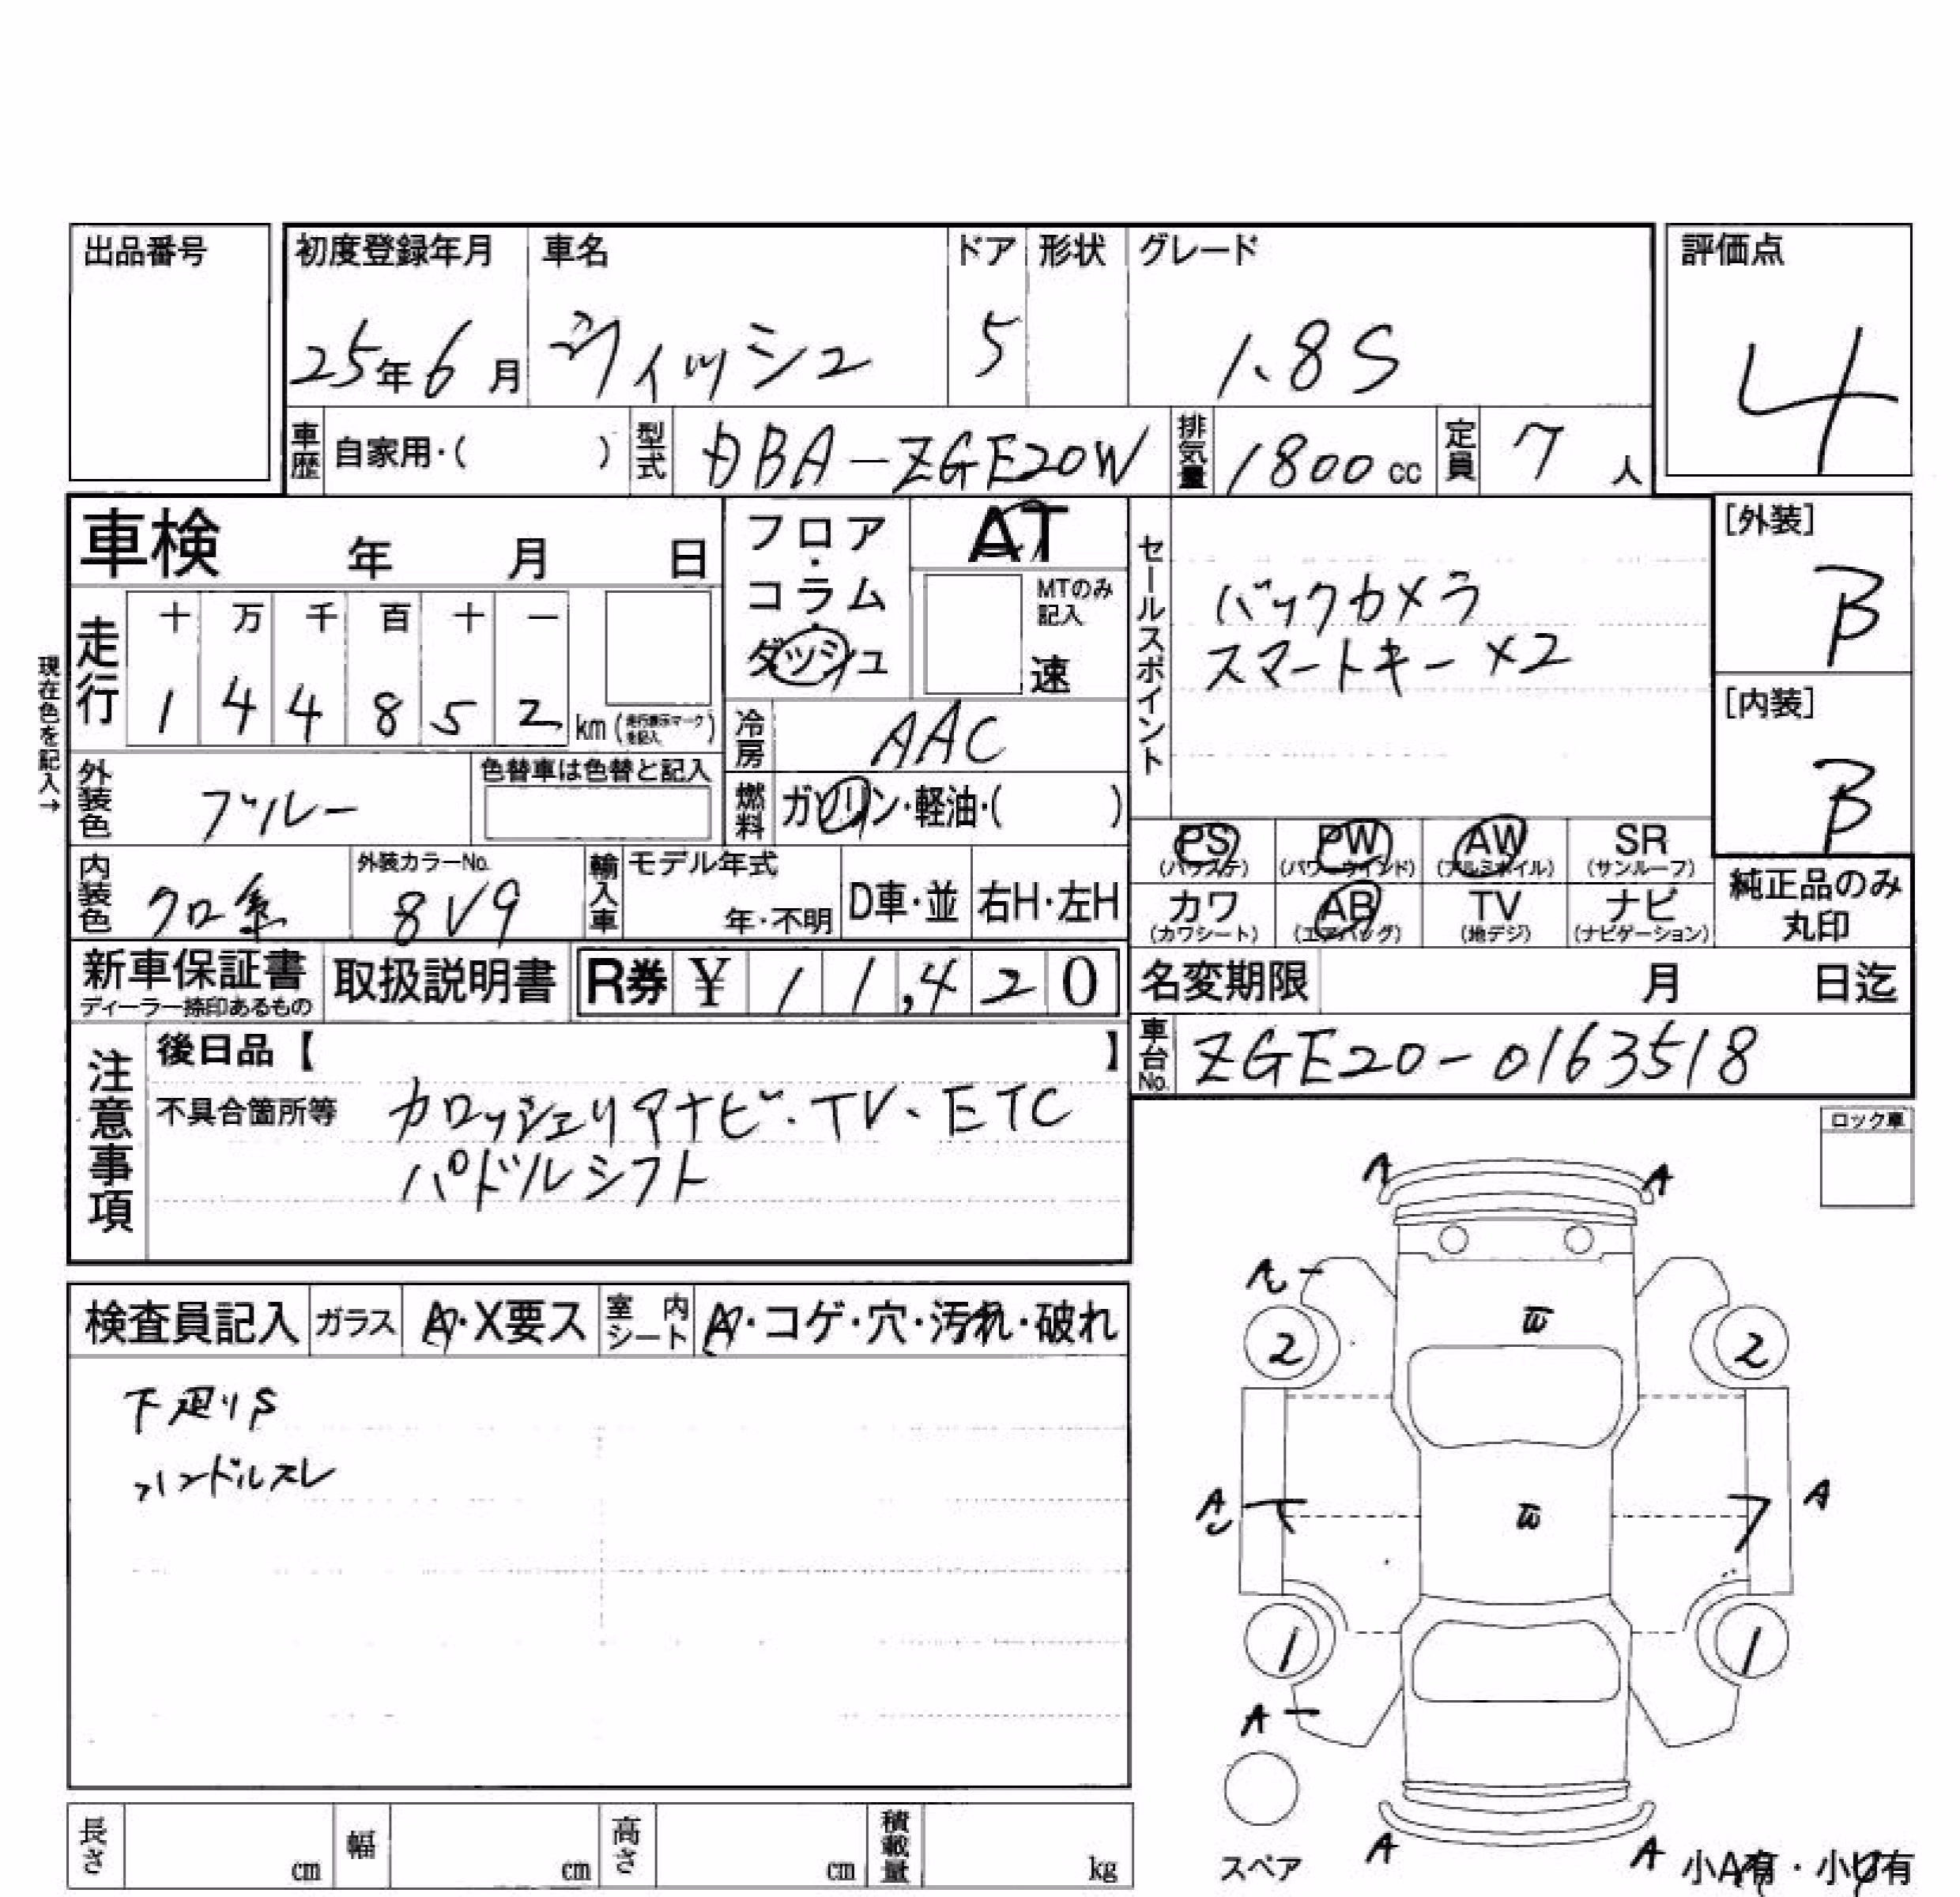 出品番号
初度登録年月 車名 ドア 形状 グレード 評価点
25年6月 ヴィッシュ 5 1.8S 4
車歴 自家用・( ) 型式 DBA-ZGE20W 排気量 1800cc 定員 7人
車検 年 月 日
フロア・コラム・ダッシュ
AT
MTのみ記入
速
セールスポイント
バックカメラ
スマートキー×2
[外装]
B
[内装]
B
純正品のみ
丸印
現在色を記入→
走行
十 万 千 百 十 一
1 4 4 8 5 2 km (走行表示マークを記入)
冷房 AAC
外装色 ブルー 色替車は色替と記入
燃料 ガソリン・軽油・( )
内装色 クロ系 外装カラーNo. 8V9
輸入車 モデル年式 年・不明 D車・並 右H・左H
PS (パワステ) PW (パワーウインド) AW (アルミホイル) SR (サンルーフ)
カワ (カワシート) AB (エアバッグ) TV (地デジ) ナビ (ナビゲーション)
新車保証書 ディーラー捺印あるもの
取扱説明書
R券 ¥ 11,420
名変期限 月 日迄
車台No. ZGE20-0163518
注意事項
後日品【 】
不具合箇所等 カロッシェリアナビ・TV・ETC
パドルシフト
ロック車
検査員記入 ガラス A・X要ス 室内シート A・コゲ・穴・汚れ・破れ
下廻りS
ハンドルスレ
A A
A
W
2 2
A A
W
1 1
A
スペア
A A
小A有・小U有
長さ cm 幅 cm 高さ cm 積載量 kg